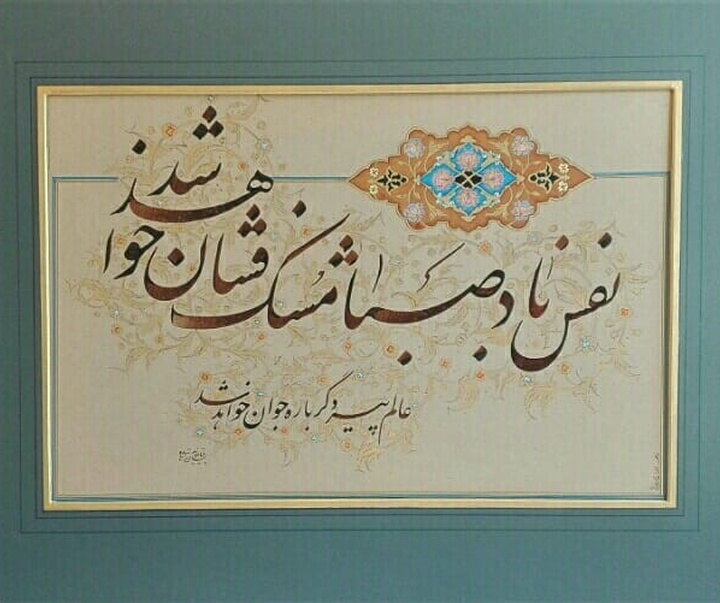 نفس باد صبا مشک فشان خواهد شد
عالم پیر دگرباره جوان خواهد شد